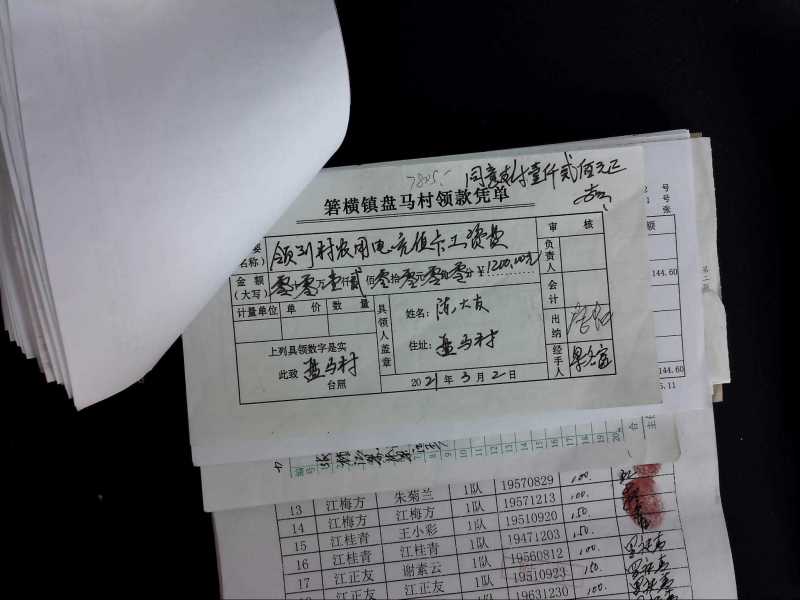 7805.-
同意支付壹仟贰佰元正
箬横镇盘马村领款凭单
要
名称) 领到村农用电充值卡工资费
审 核
金额
(大写) 零十零万壹仟贰佰零拾零元零角零分 ¥1200.00元
负责人
会计
计量单位 单 价 数 量
具领人盖章
姓名: 陈大友
住址: 盘马村
出纳
经手人
上列具领数字是实
此致 盘马村
台照
2021年3月2日
2 号
1 号
张
额
144.60
第二联
144.60
5.11
编号
7 8 9 10 11 12 13 14 15 16 17 18 19 20
合
主任
13 江梅方 朱菊兰 1队 19570829 100.
14 江梅方 江梅方 1队 19571213 150.
15 江桂青 王小彩 1队 19510920 150.
16 江桂青 江桂青 1队 19471203 100.
17 江正友 谢素云 1队 19560812 150.
江正友 江正友 1队 19510923 100.
19631230